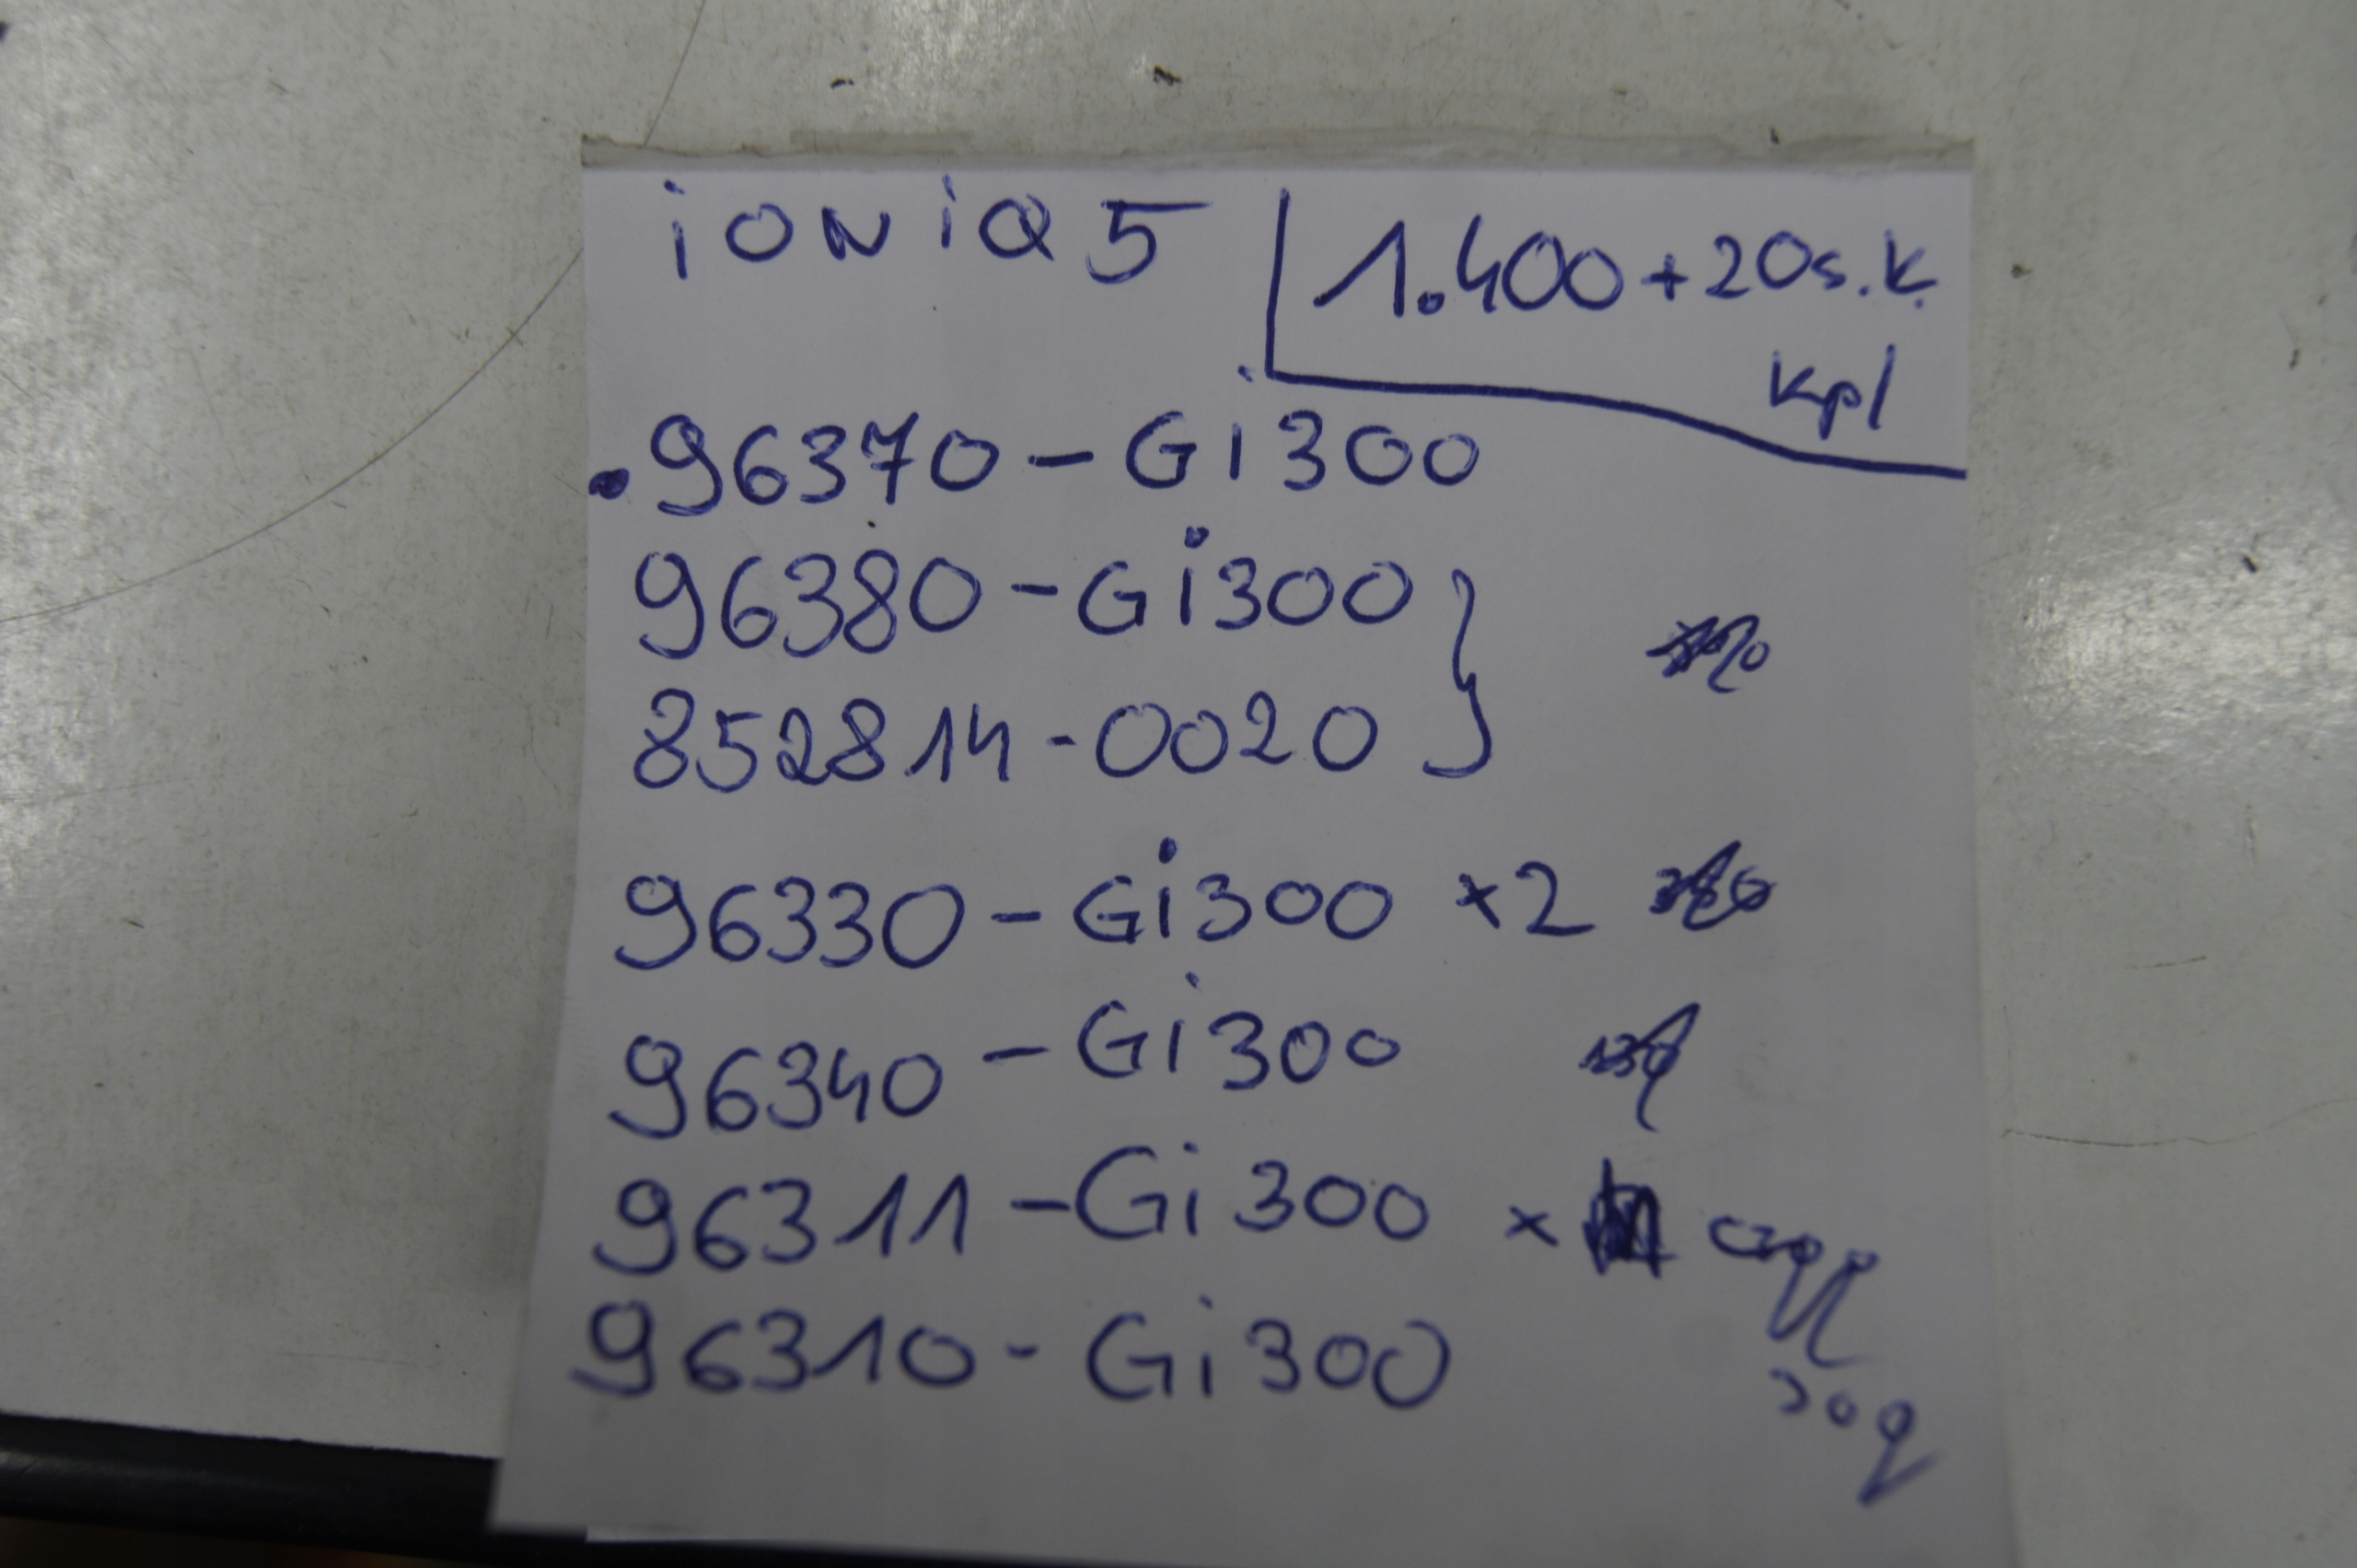 iONiQ 5
1.400 + 20s.k.
kpl
.96370 - Gi300
96380 - Gi300
852814 - 0020
96330 - Gi300 x2
96340 - Gi300
96311 - Gi300 x
96310 - Gi300